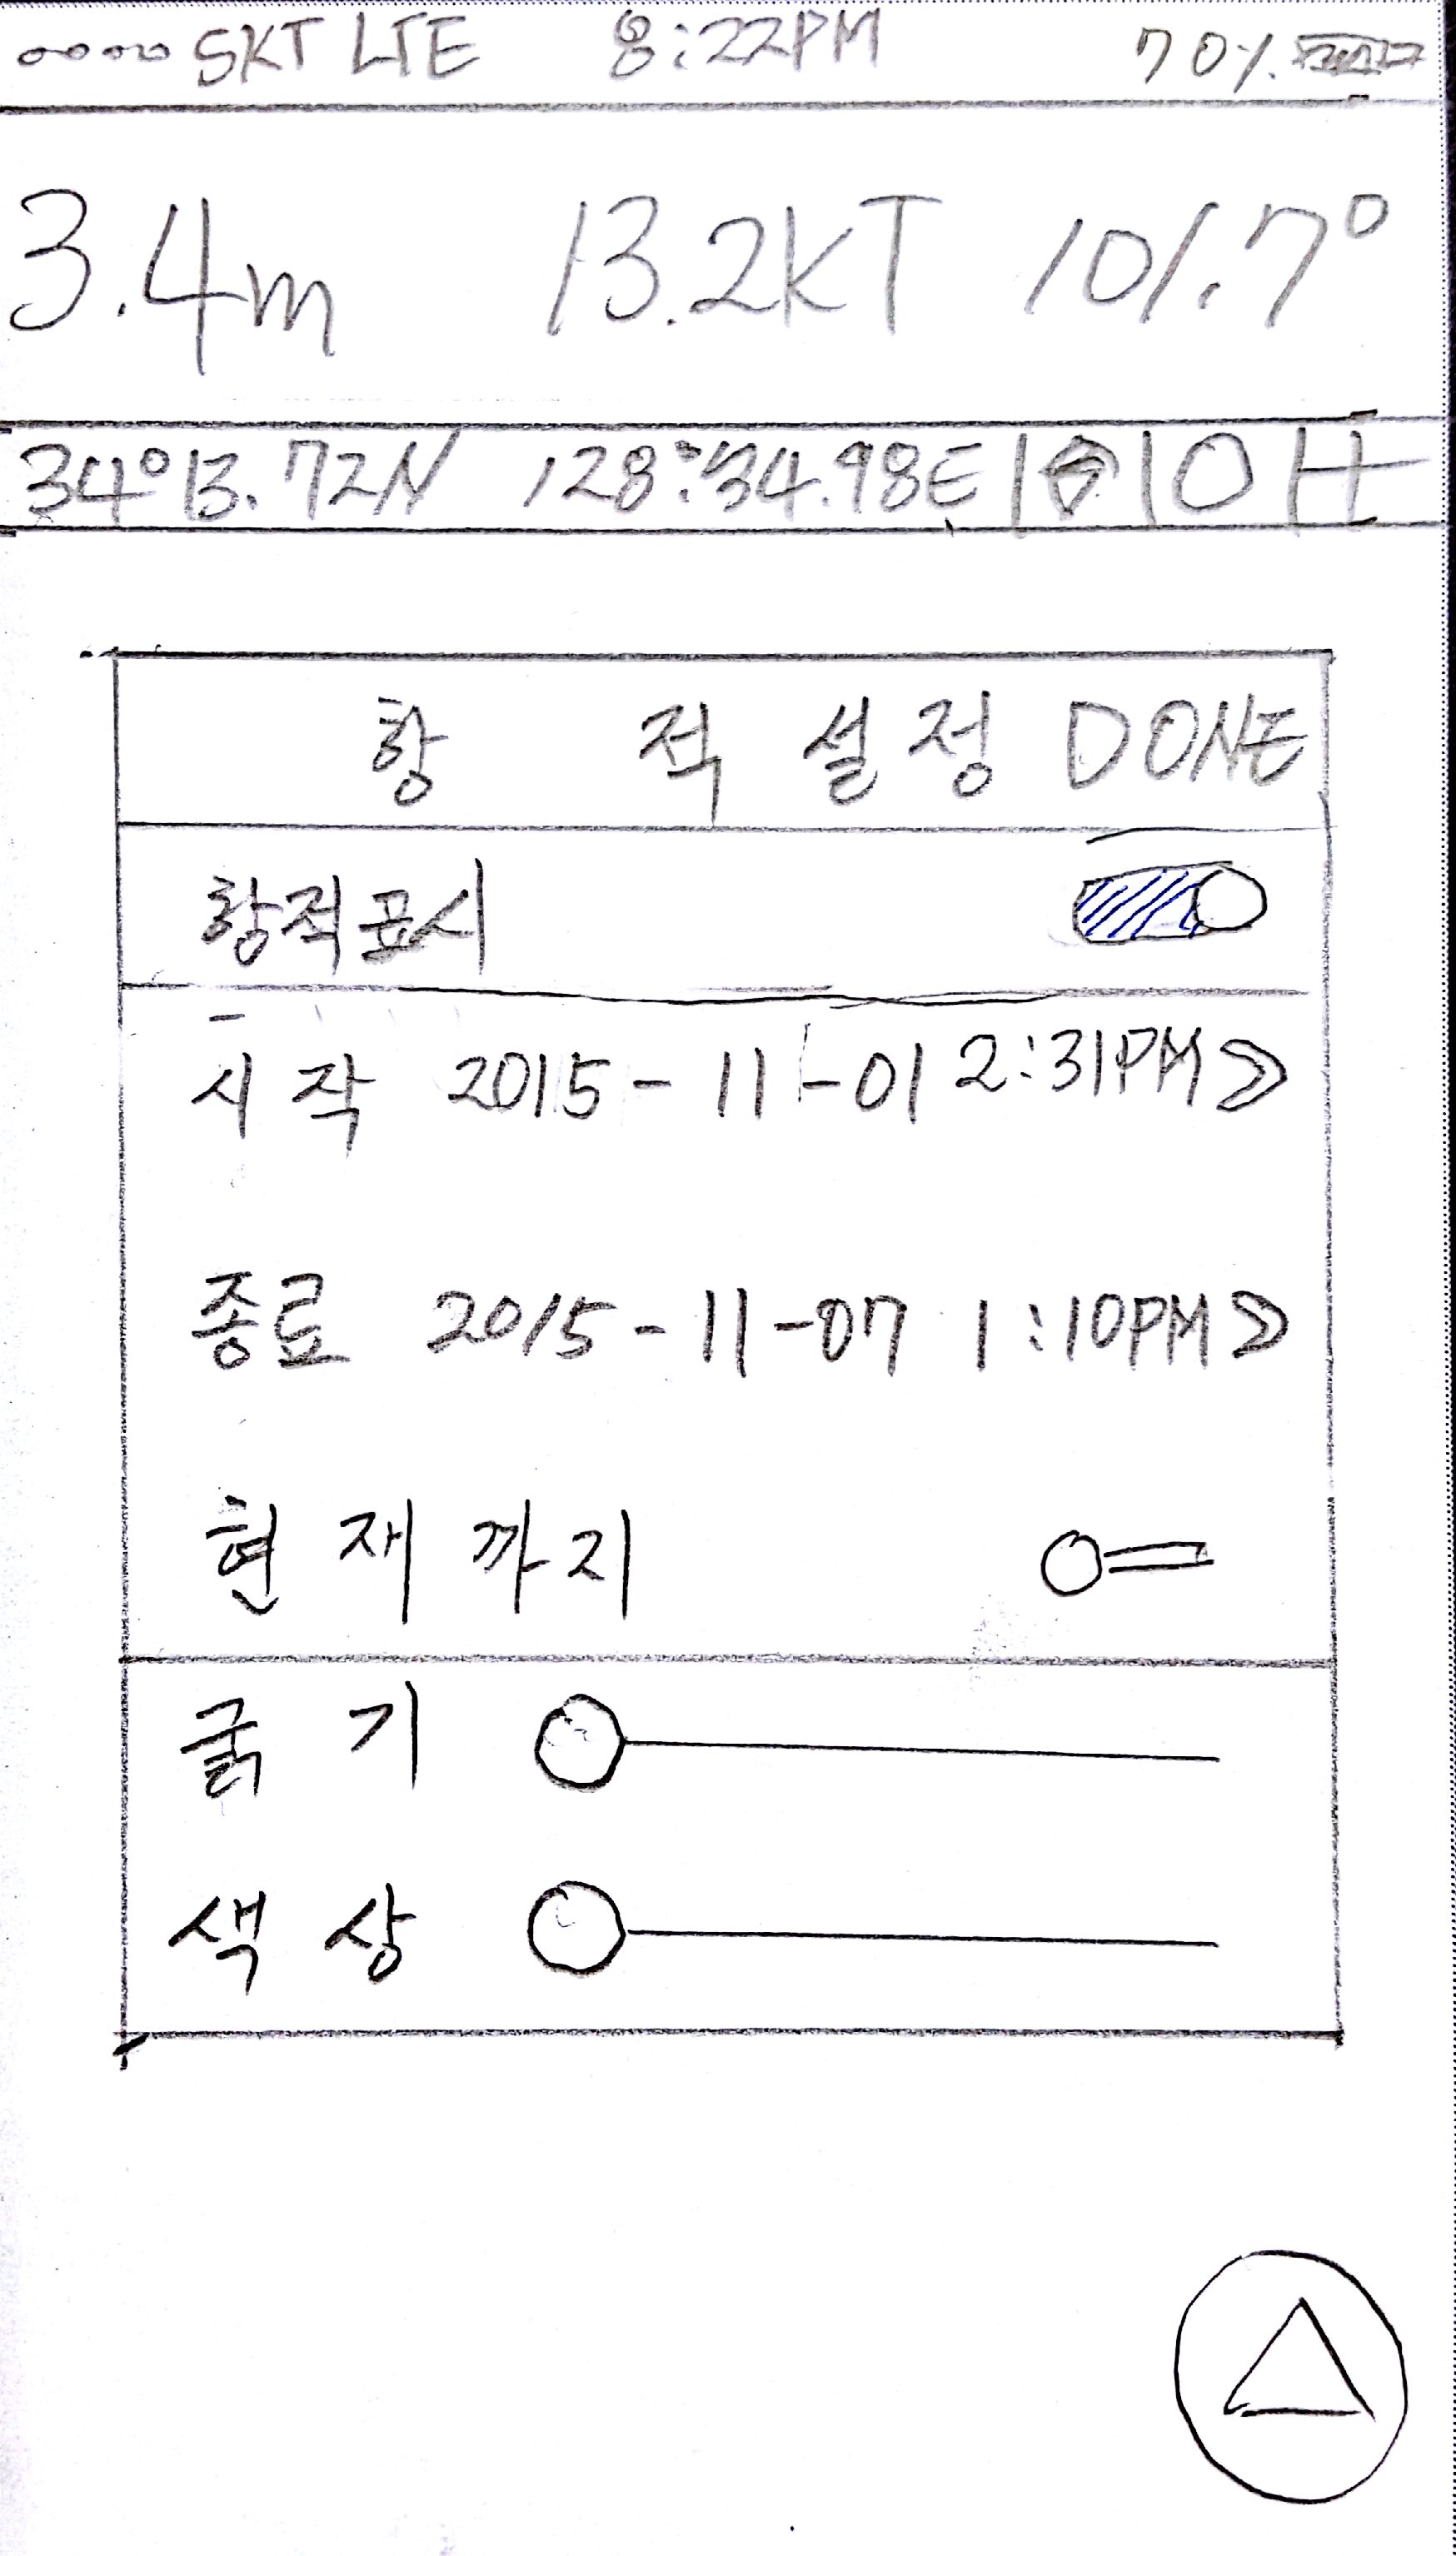 SKT LTE 8:22PM 70%
3.4m 13.2KT 101.7°
34°13.72N 128°34.98E
항 적 설 정 DONE
항적표시
시작 2015-11-01 2:31PM >
종료 2015-11-07 1:10PM >
현재까지
굵기
색상